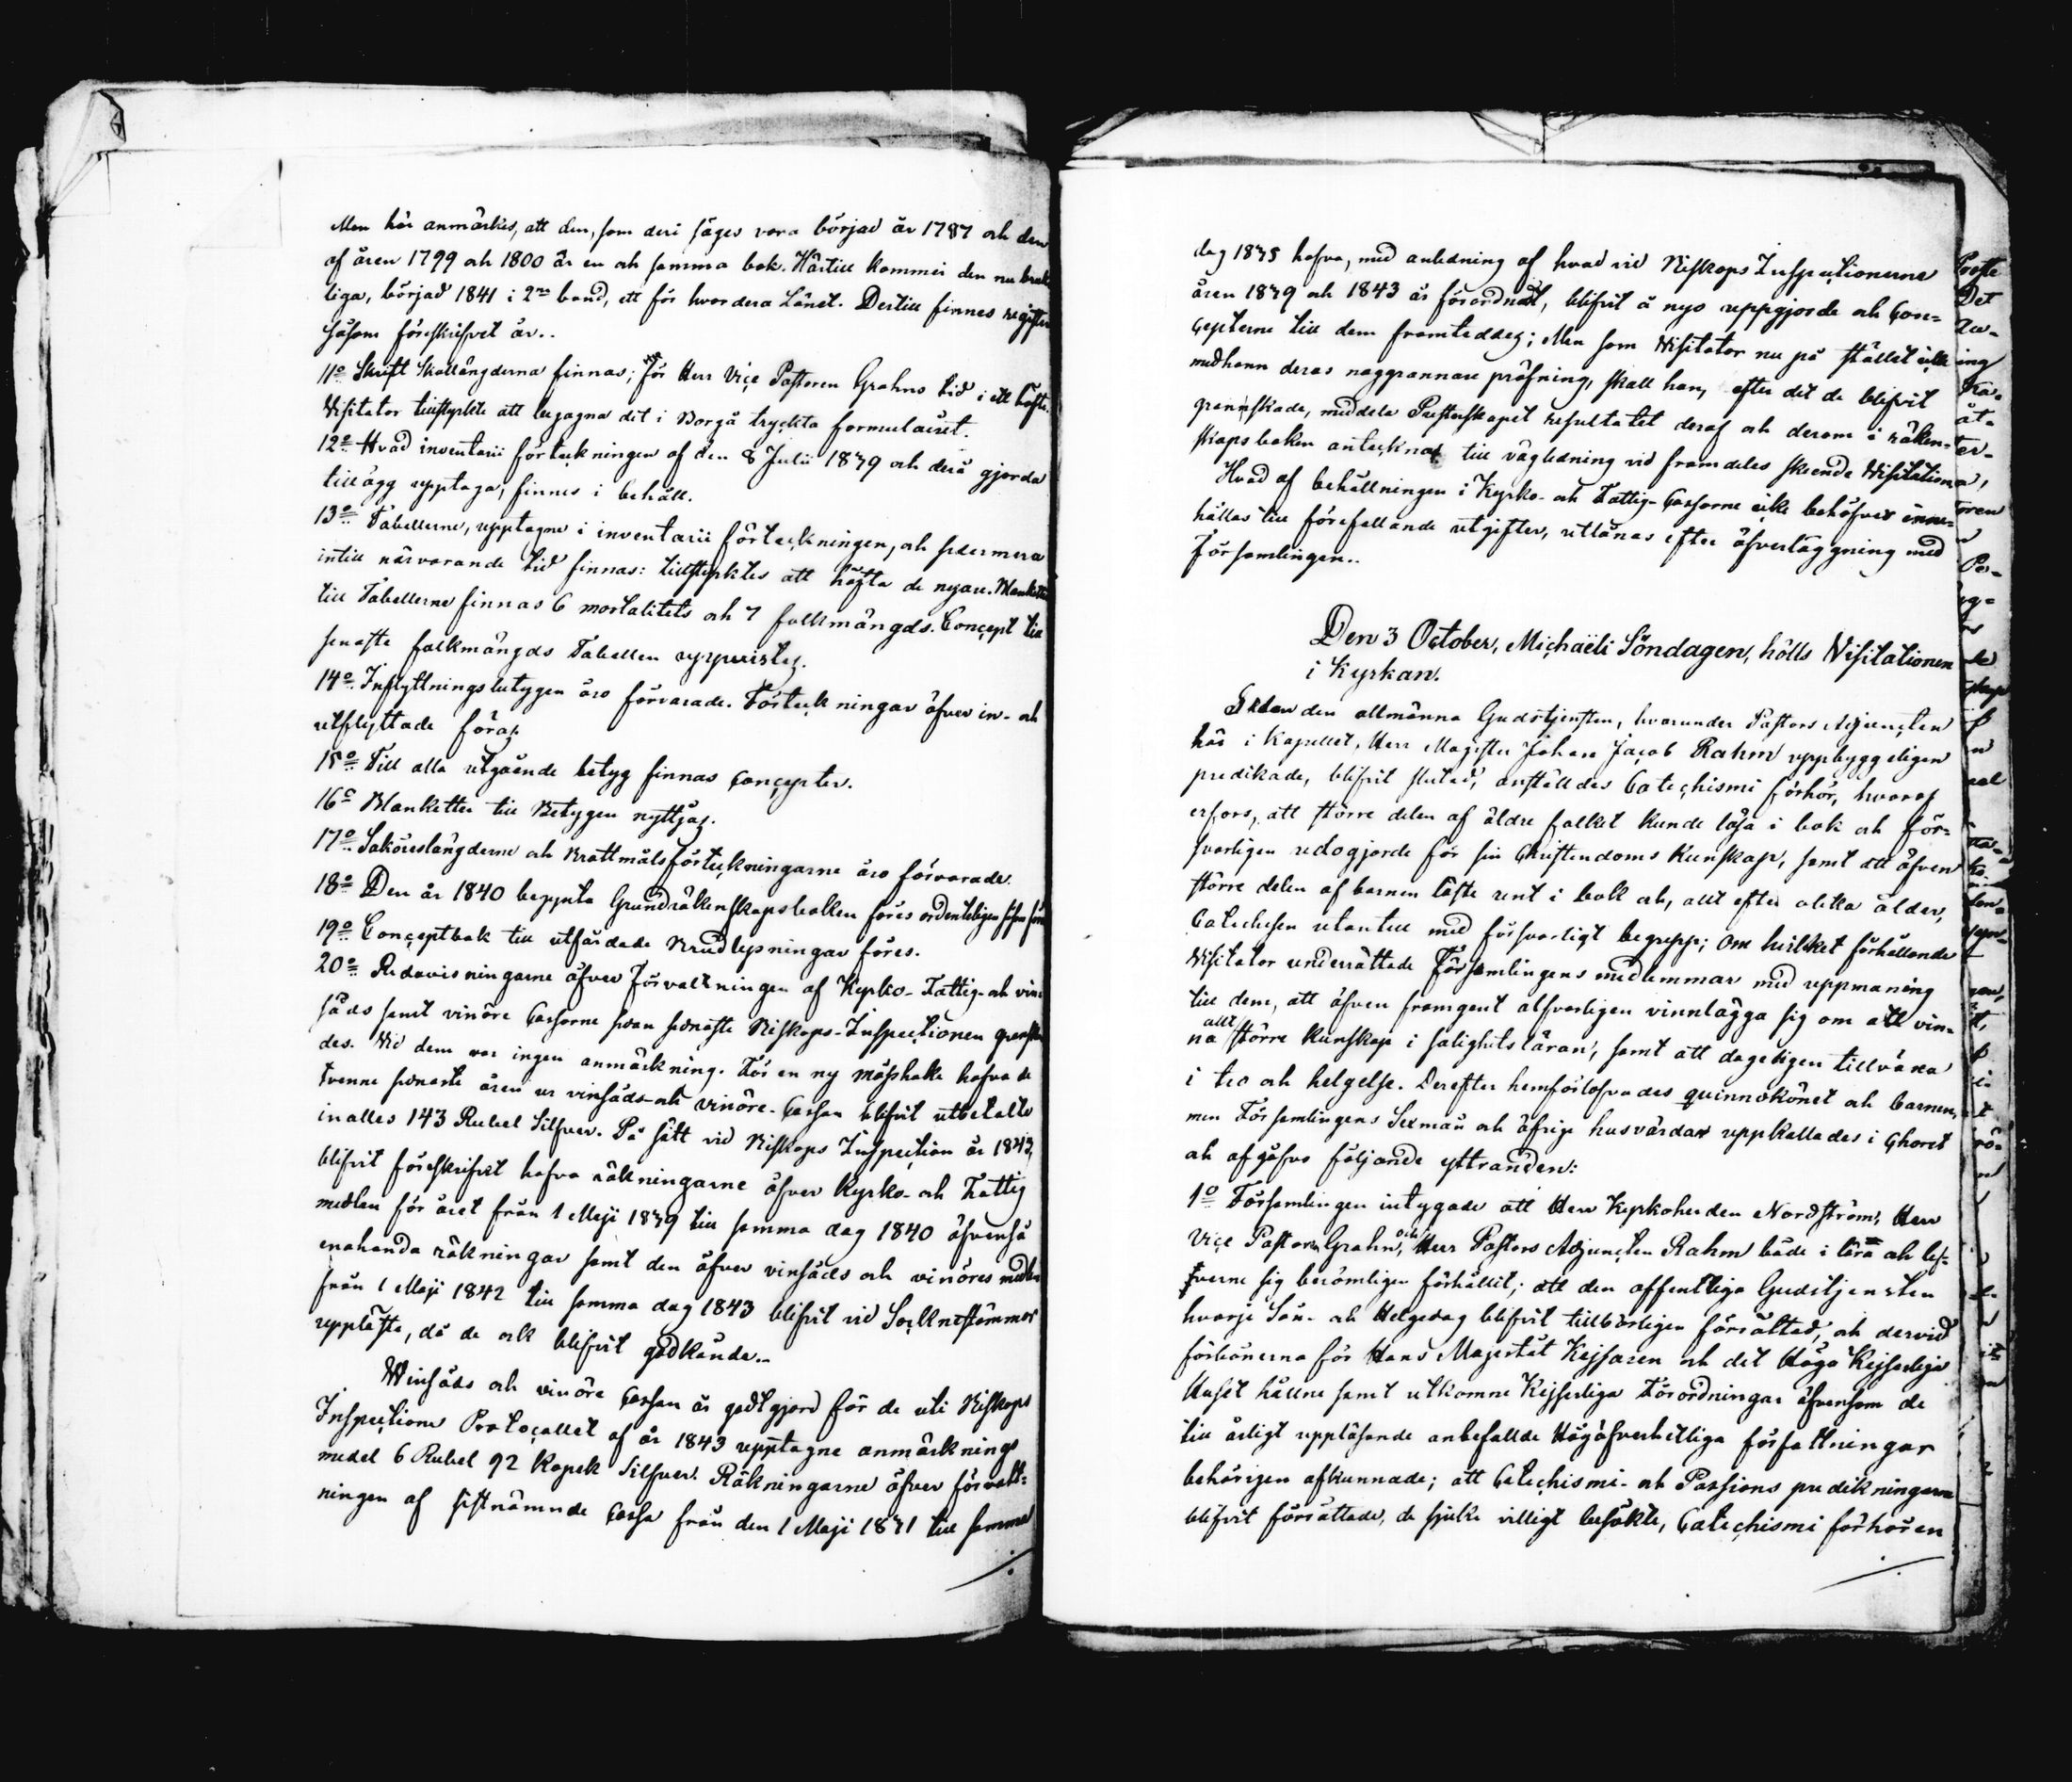 Men här anmärkes, att den, som deri säges vara börjad år 1787 och den
af åren 1799 och 1800 är en och samma bok. Härtill kommer den nu bruk
liga, börjad 1841 i 2ne band, ett för hvardera Länet. Dertill finnes register
såsom föreskrifvet är..
11o Skrift Skallängderna finnas; för Herr Vice Pastoren Grahns tid i ett häfte.
Visitator tillstyrkte att begagna det i Borgå tryckta formulairet.
12o Hvad inventarii förteckningen af den 8 Julii 1839 och derå gjorda
tillägg upptaga, finnes i behåll.
13o Tabellerne, upptagne i inventarii förteckningen, och sedermera
intill närvarande tid finnas: tillstyrktes att häfta de nyare. Blanketter
till Tabellerne finnas 6 mortalitets och 7 folkmängds. Concept till
senaste folkmängds Tabellen uppvistes.
14o Inflyttningsbetygen äro förvarade. Förteckningar öfver in- och
utflyttade föras.
15o Till alla utgående betyg finnas Concepter.
16o Blanketter till Betygen nyttjas.
17o Saköreslängderne och Brottmålsförteckningarne äro förvarade.
18o Den år 1840 begynta Grundräkenskapsboken föres ordenteligen
19o Conceptbok till utfärdade Brudlysningar föres.
20o Redovisningarne öfver Förvaltningen af Kyrko- Fattig- och vin
säds samt vinöre Cassorne sedan senaste Biskops-Inspectionen granska
des. Vid dem var ingen anmärkning. För en ny mässhake hafva de
tvenne senaste åren ur vinsäds- och vinöre- Cassan blifvit utbetalte
inalles 143 Rubel Silfver. På sätt vid Biskops Inspection år 1843,
blifvit föreskrifvit hafva räkningarne öfver Kyrko- och Fattig
medlen för året från 1 Maji 1839 till samma dag 1840 äfvenså
enahanda räkningar samt den öfver vinsäds och vinöres medlen
från 1 Maji 1842 till samma dag 1843 blifvit vid Socknestämmor
uppläste, då de ock blifvit godkände..
Vinsäds och vinöre Cassan är godtgjord för de uti Biskops
Inspections Protocollet af år 1843 upptagne anmärknings
medel 6 Rubel 92 Kopek Silfver. Räkningarne öfver förvalt-
ningen af sistnämnde Cassa från den 1 Maji 1831 till samma
dag 1835 hafva, med anledning af hvad vid Biskops Inspectionerne
åren 1839 och 1843 är förordnat, blifvit å nyo uppgjorde och Con-
cepterne till dem framteddes; Men som Visitator nu på stället icke
medhann deras noggrannare pröfning, skall han, efter det de blifvit
granskade, meddela Presterskapet resultatet deraf och derom i räken-
skapsboken antecknas till vägledning vid framdeles skeende Visitation.
Hvad af behållningen i Kyrko- och Fattig- Cassorne icke behöfves inne-
hållas till förefallande utgifter, utlånas efter öfverläggning med
Församlingen..
Den 3 October, Michaëli Söndagen, hölls Visitationen
i Kyrkan.
Sedan den allmänna Gudstjensten, hvarunder Pastors Adjuncten
här i Kapellet, Herr Magister Johan Jacob Rahm uppbyggeligen
predikade, blifvit slutad, anställdes Catechismi förhör, hvaraf
erfors, att större delen af äldre folket kunde läsa i bok och för-
svarligen redogjorde för sin Christendoms Kunskap, samt att äfven
större delen af barnen läste rent i bok och, allt efter olika ålder,
Catechesen utantill med försvarligt begrepp; om hvilket förhållande
Visitator underrättade Församlingens medlemmar med uppmaning
till dem, att äfven framgent alfvarligen vinnlägga sig om att vin-
na allt större kunskap i salighetsläran, samt att dageligen tillväxa
i tro och helgelse. Derefter hemförlofvades quinnokönet och barnen,
men Församlingens Sexmän och öfrige husvärdar uppkallades i Choret
och afgåfvo följande yttranden:
1o Församlingen intygade att Herr Kyrkoherden Nordström, Herr
Vice Pastorn Grahn, och Herr Pastors Adjuncten Rahm både i lära och lef-
verne sig berömligen förhållit; att den offentliga Gudstjensten
hvarje Sön- och Helgedag blifvit tillbörligen förrättad, och dervid
förbönerna för Hans Majestät Kejsaren och det Höga Kejserliga
Huset hållne samt utkomne Kejserliga Förordningar äfvensom de
till årligt uppläsande anbefallde Högöfverhetliga författningar
behörigen afkunnade; att Catechismi- och Passions predikningarne
blifvit förrättade, de sjuke villigt besökte, Catechismi förhören